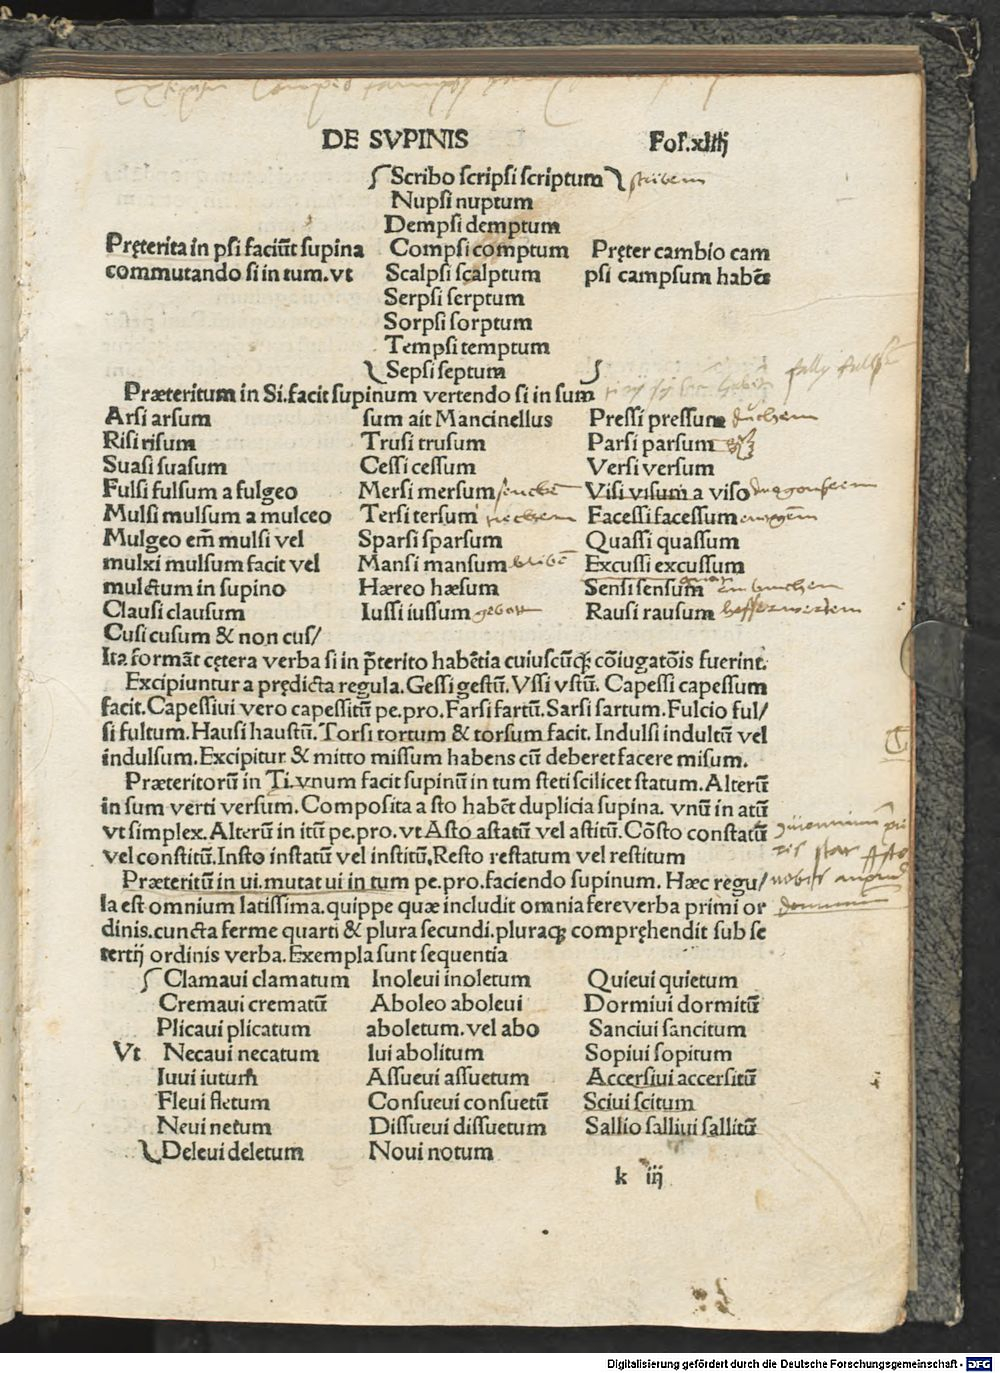 DE SVPINIS Fol.xliiij
Scribo scripsi scriptum
Nupsi nuptum
Dempsi demptum
Pręterita in psi faciūt supina Compsi comptum Pręter cambio cam
commutando si in tum.vt Scalpsi scalptum psi campsum habēs
Serpsi serptum
Sorpsi sorptum
Tempsi temptum
Sepsi septum
Præteritum in Si.facit supinum vertendo si in sum
Arsi arsum sum ait Mancinellus Pressi pressum
Risi risum Trusi trusum Parsi parsum
Suasi suasum Cessi cessum Versi versum
Fulsi fulsum a fulgeo Mersi mersum Visi visum a viso
Mulsi mulsum a mulceo Tersi tersum Facessi facessum
Mulgeo em̄ mulsi vel Sparsi sparsum Quassi quassum
mulxi mulsum facit vel Mansi mansum Excussi excussum
mulctum in supino Hæreo hæsum Sensi sensum
Clausi clausum Iussi iussum Rausi rausum
Cusi cusum & non cus/
Ita formāt cętera verba si in p̄terito habētia cuiuscūq; cōiugatōis fuerint.
Excipiuntur a prędicta regula.Gessi gestū.Vssi vstū. Capessi capessum
facit.Capessiui vero capessitū pe.pro.Farsi fartū.Sarsi sartum.Fulcio ful/
si fultum.Hausi haustū.Torsi tortum & torsum facit.Indulsi indultū vel
indulsum.Excipitur & mitto missum habens cū deberet facere misum.
Præteritorū in Ti.vnum facit supinū in tum steti scilicet statum.Alterū
in sum verti versum.Composita a sto habēt duplicia supina. vnū in atū
vt simplex.Alterū in itū pe.pro.vt Asto astatū vel astitū.Cōsto constatū
vel constitū.Insto instatū vel institū.Resto restatum vel restitum
Præteritū in ui.mutat ui in tum pe.pro.faciendo supinum. Hæc regu/
la est omnium latissima.quippe quæ includit omnia fere verba primi or
dinis.cuncta ferme quarti & plura secundi.pluraq; compręhendit sub se
tertij ordinis verba.Exempla sunt sequentia
Clamaui clamatum Inoleui inoletum Quieui quietum
Cremaui crematū Aboleo aboleui Dormiui dormitū
Plicaui plicatum aboletum.vel abo Sanciui sancitum
Vt Necaui necatum lui abolitum Sopiui sopitum
Iuui iutum Assueui assuetum Accersiui accersitū
Fleui fletum Consueui consuetū Sciui scitum
Neui netum Dissueui dissuetum Sallio salliui sallitū
Deleui deletum Noui notum
k iij
Digitalisierung gefördert durch die Deutsche Forschungsgemeinschaft - DFG